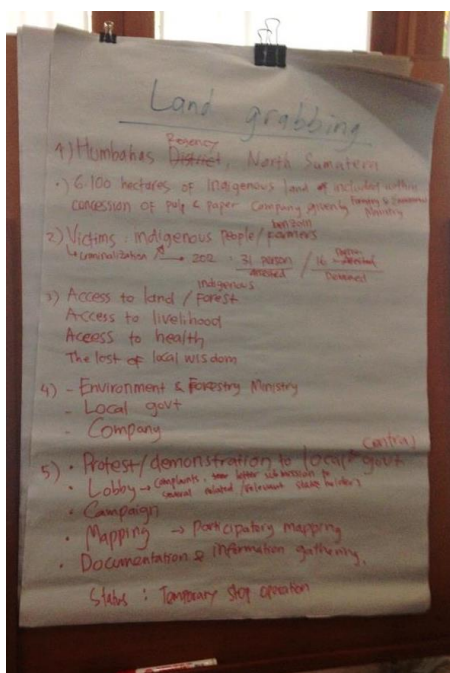 Land grabbing
Regency
1) Humbahas District, North Sumatera
.) 6.100 hectares of Indigenous land included within
concession of pulp & paper company given by Forestry & Environment
Ministry
2) Victims : indigenous people / farmers
benzoin
↳ criminalization → 2012 : 31 person / 16 person
arrested Detained
indigenous
3) Access to land / forest
Access to livelihood
Access to health
The lost of local wisdom
4) - Environment & Forestry Ministry
- Local govt
- Company
central
5) • Protest / demonstration to local & govt
• Lobby → complaints, letter submission to
several related / relevant stake holders
• Campaign
• Mapping → participatory mapping
• Documentation & information gathering.
Status : Temporary stop operation